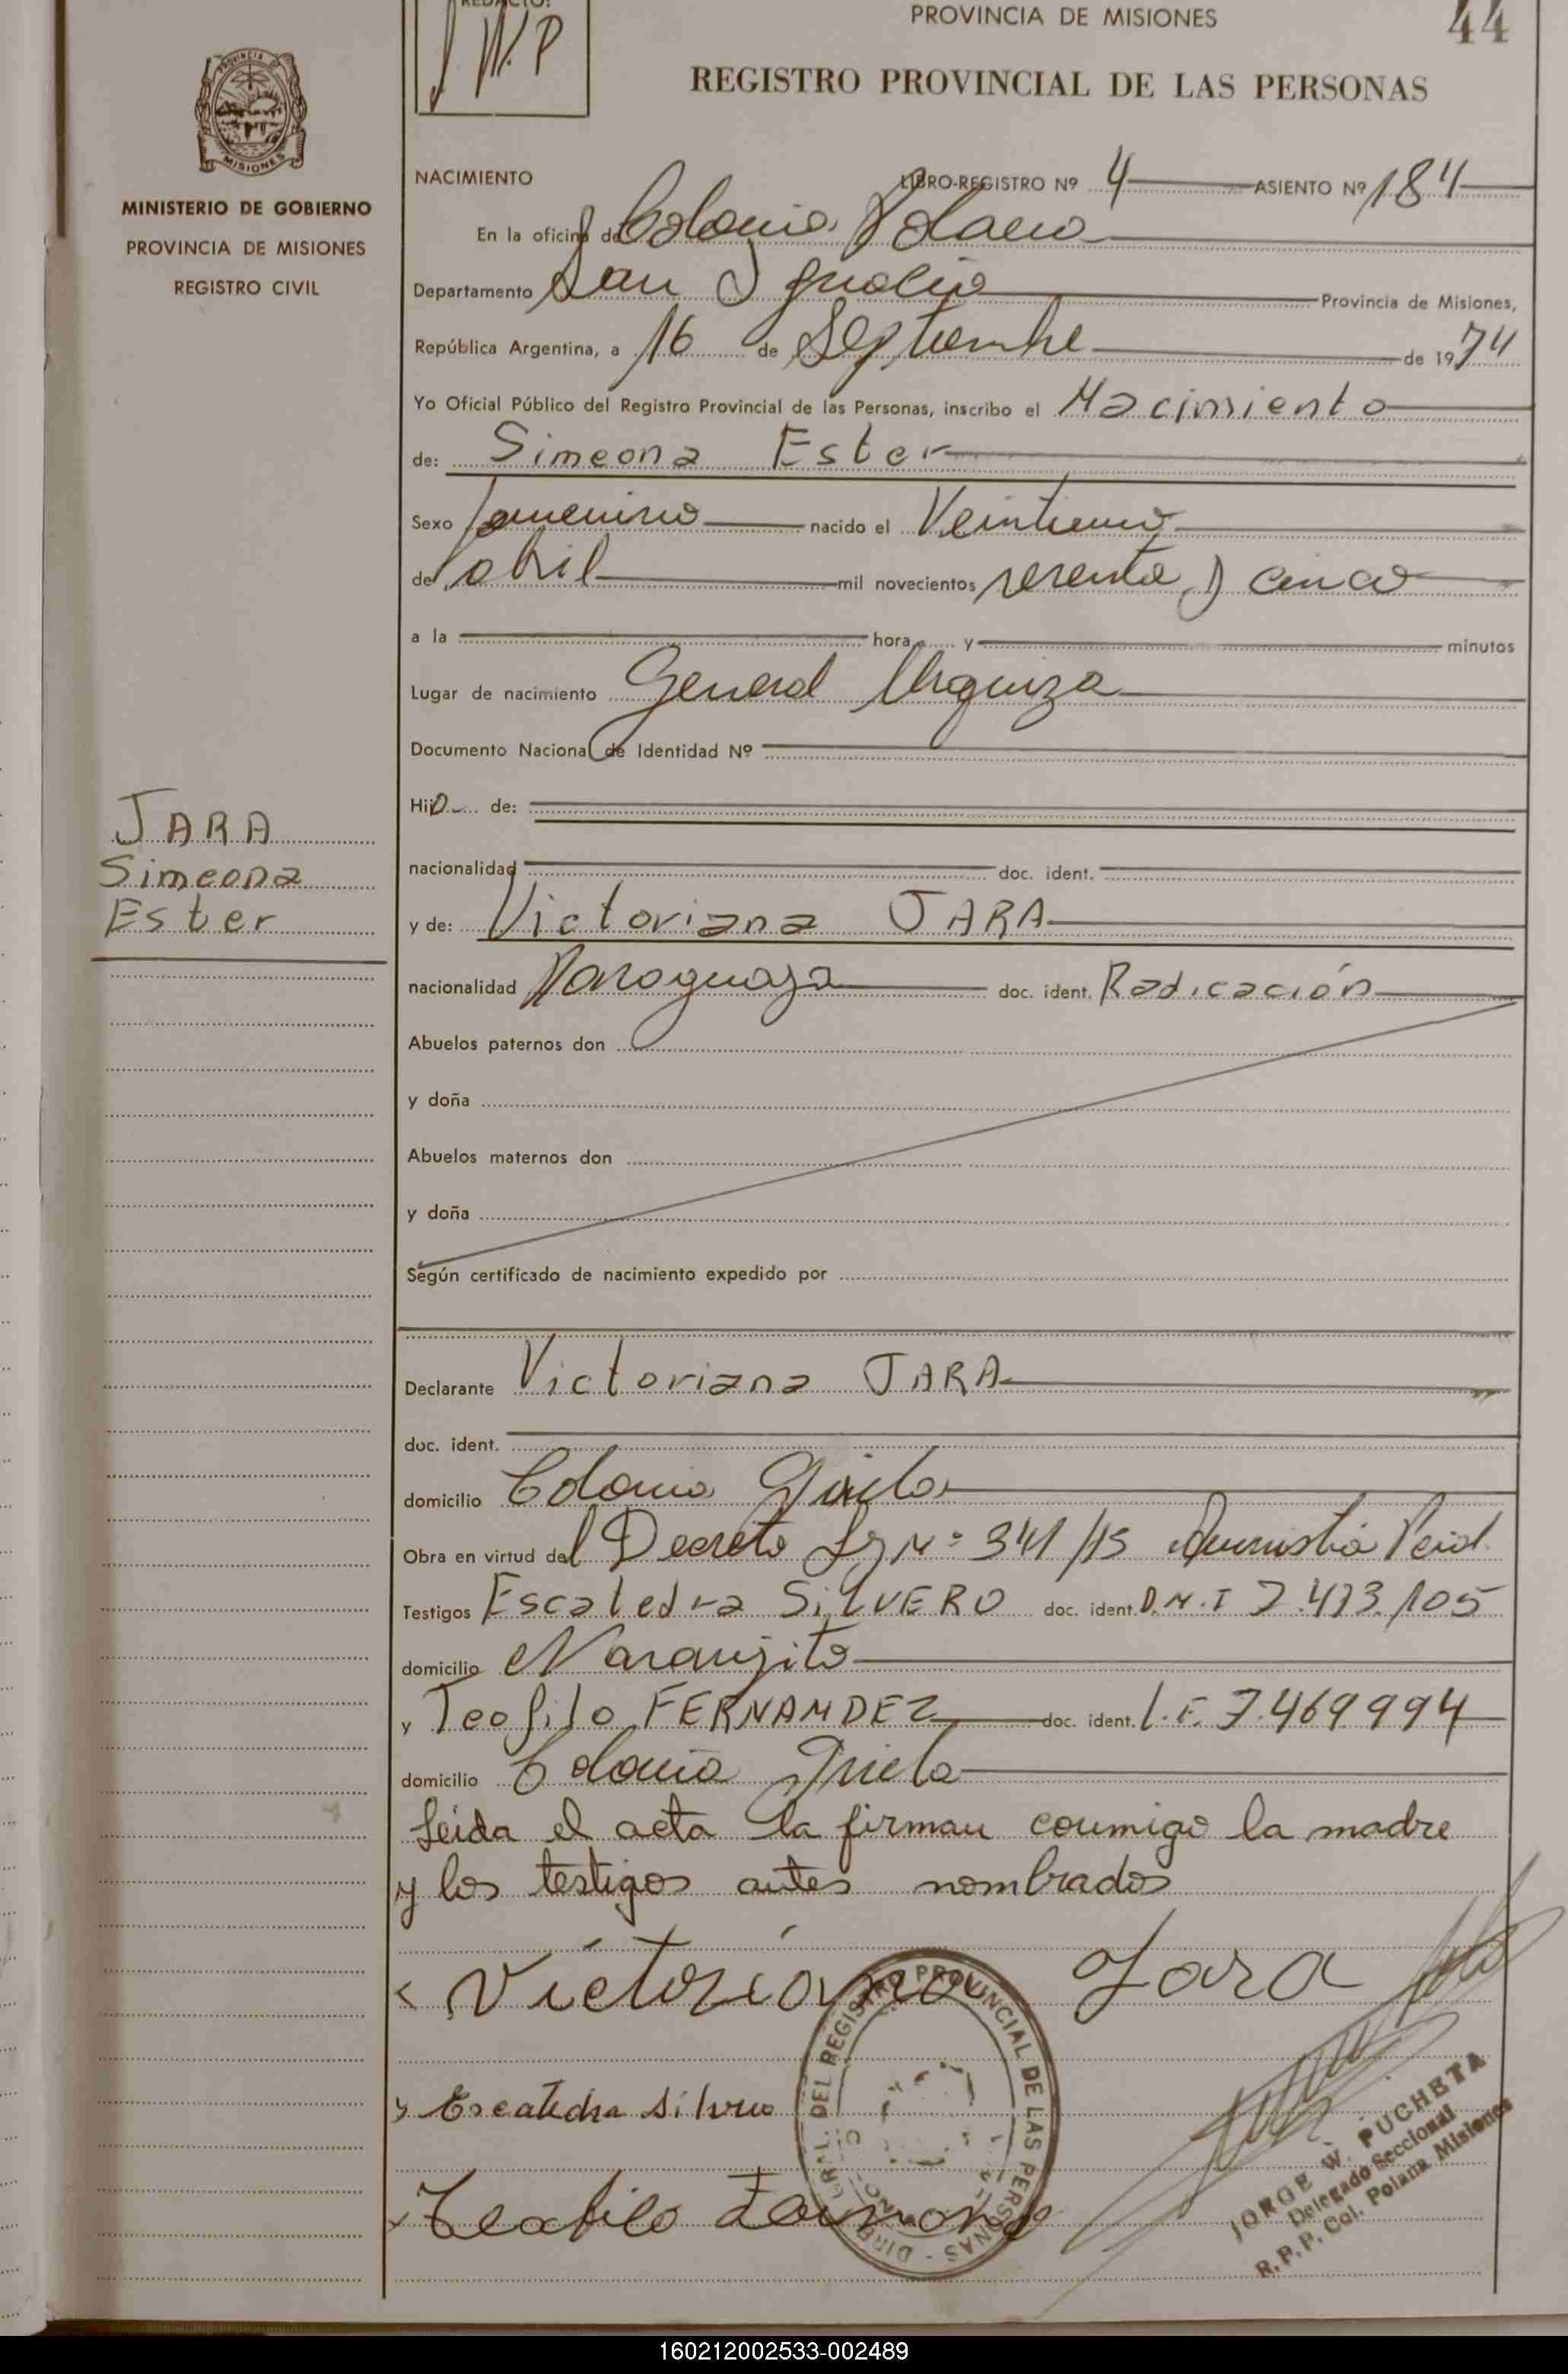 REDACTÓ:
J.W.P
PROVINCIA DE MISIONES
44
REGISTRO PROVINCIAL DE LAS PERSONAS
PROVINCIA DE
MISIONES
MINISTERIO DE GOBIERNO
PROVINCIA DE MISIONES
REGISTRO CIVIL
NACIMIENTO LIBRO-REGISTRO Nº 4 ASIENTO Nº 184
En la oficina de Colonia Polana
Departamento San Ignacio Provincia de Misiones,
República Argentina, a 16 de Septiembre de 1974
Yo Oficial Público del Registro Provincial de las Personas, inscribo el Nacimiento
de: Simeona Ester
Sexo femenino nacido el Veintiuno
de abril mil novecientos sesenta y cinco
a la hora y minutos
Lugar de nacimiento General Urquiza
Documento Nacional de Identidad Nº
Hija de:
nacionalidad doc. ident.
JARA
Simeona
Ester
y de: Victoriana JARA
nacionalidad Paraguaya doc. ident. Radicación
Abuelos paternos don
y doña
Abuelos maternos don
y doña
Según certificado de nacimiento expedido por
Declarante Victoriana JARA
doc. ident.
domicilio Colonia
Obra en virtud del Decreto Ley Nº 341/ Amnistia
Testigos Escaledra SILVERO doc. ident. D.N.I 7.413.105
domicilio Naranjito
y Teofilo FERNANDEZ doc. ident. L.E. 7.469.994
domicilio Colonia
Leida el acta la firman conmigo la madre
y los testigos antes nombrados
Victoriana Jara
Escaledra Silvero
Teofilo
DIREC. GRAL. DEL REGISTRO PROVINCIAL DE LAS PERSONAS
JORGE W. PUCHETA
Delegado Seccional
R.P.P. Col. Polana Misiones
160212002533-002489